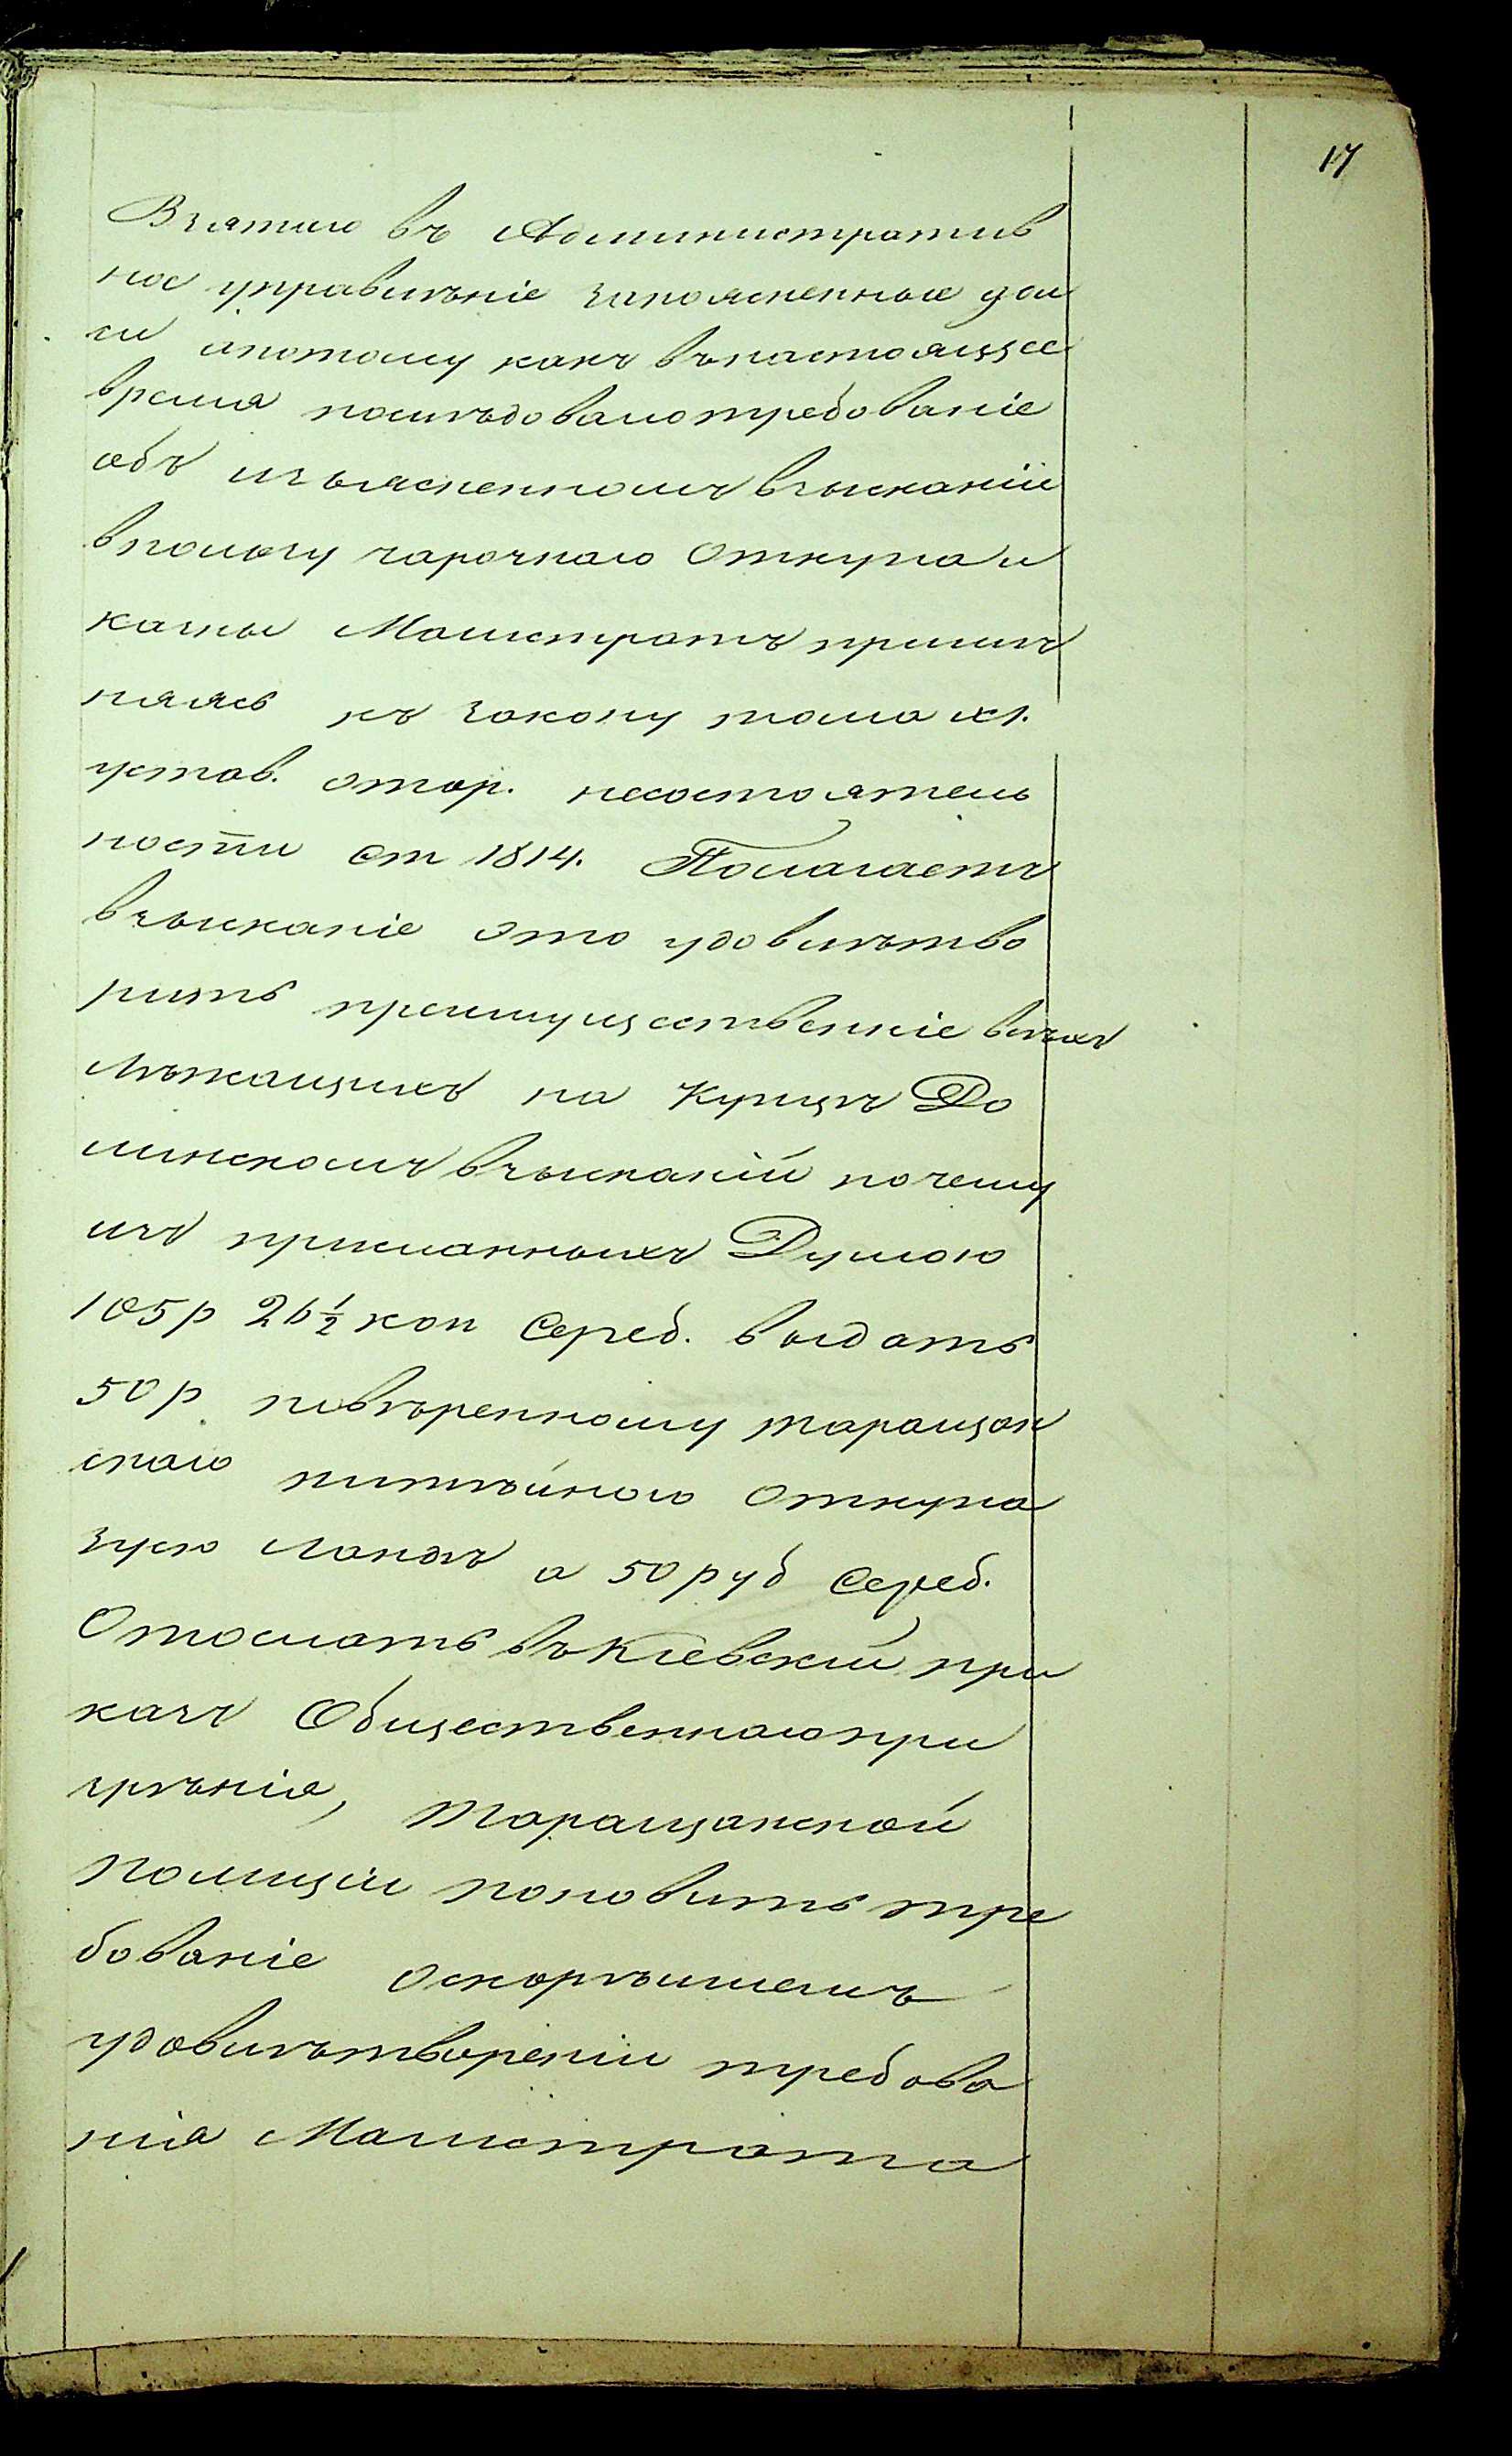 17
Взятию въ Административ
ное управленіе запоясненные дол
ги ипотому какъ въ настоящее
время послѣдовало требованіе
объ изъясненномъ взысканіи
впользу чарочнаго Откупа и
казны Магистратъ примѣ
няясь къ закону тома XI.
устав. о тор. несостоятель
ности ст 1814. Полагаетъ
взысканіе это удовилѣтво
рить преимущественніе всѣхъ
лѣжащихъ на Купцѣ До
линскомъ взысканій почему
изъ присланныхъ Думою
105 р 26 ½ коп Сереб. выдать
50 р повѣренному таращан
скаго питѣйнаго Откупа
а 50 руб Сереб.
Отослать въ Кіевскій при
казъ Общественнаго при
зрѣнія, таращанской
полиціи поновить тре
бованіе оскорѣишемъ
удовилѣтвореніи требова
нія Магистрата